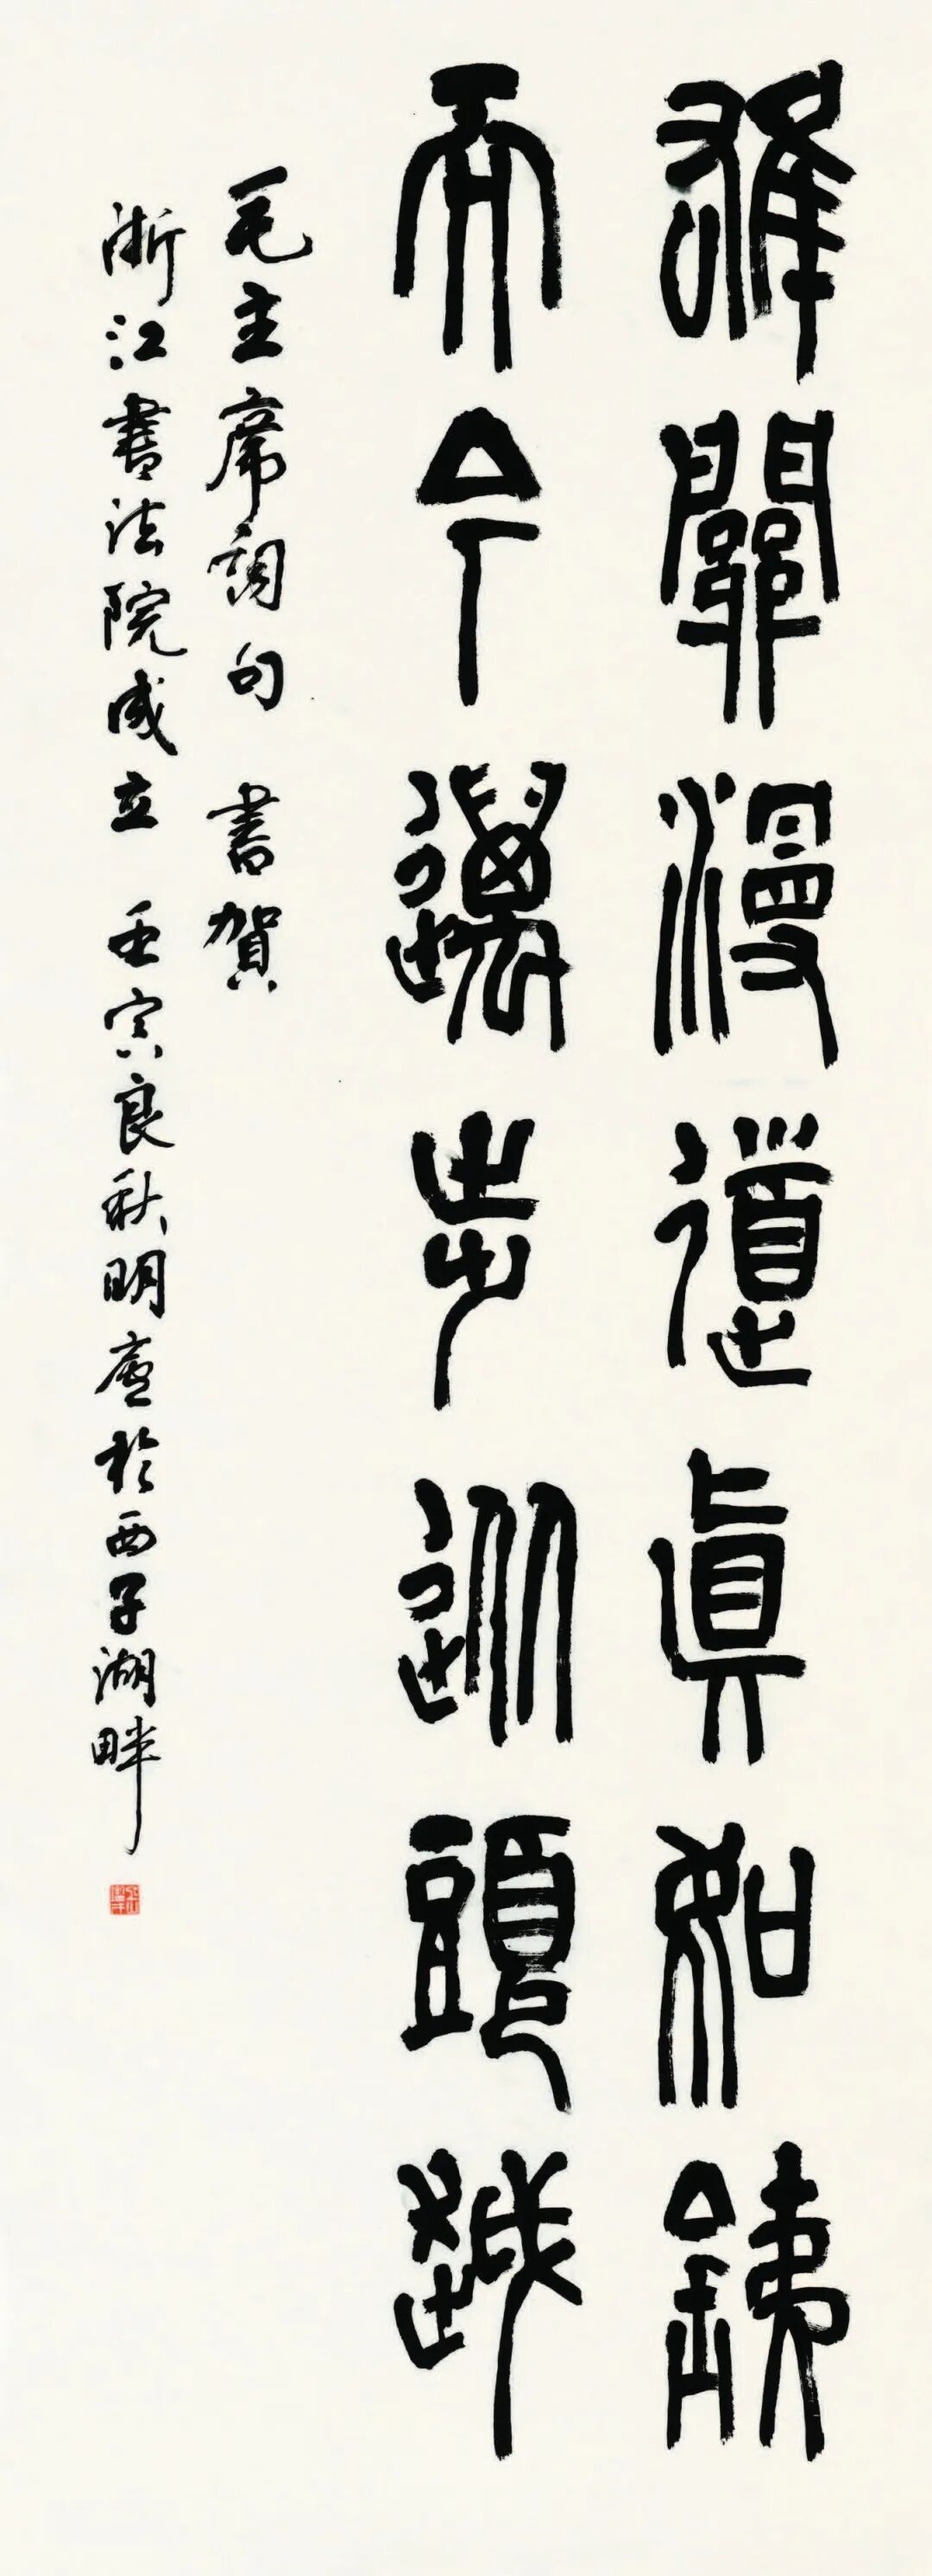 雄關漫道真如鐵
而今邁步從頭越
毛主席詞句 書賀
浙江書法院成立 壬寅良秋明廬於西子湖畔